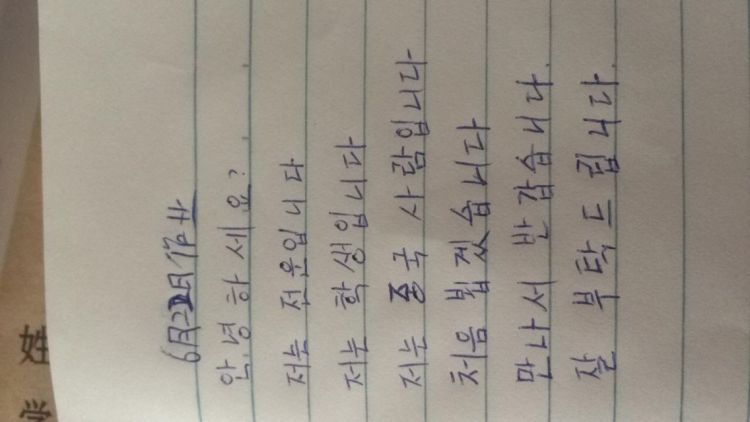 6月
안녕하세요?
저는 전운입니다
저는 학생입니다
저는 중국 사람입니다
처음 뵙겠습니다
만나서 반갑습니다.
잘 부탁드립니다.
姓